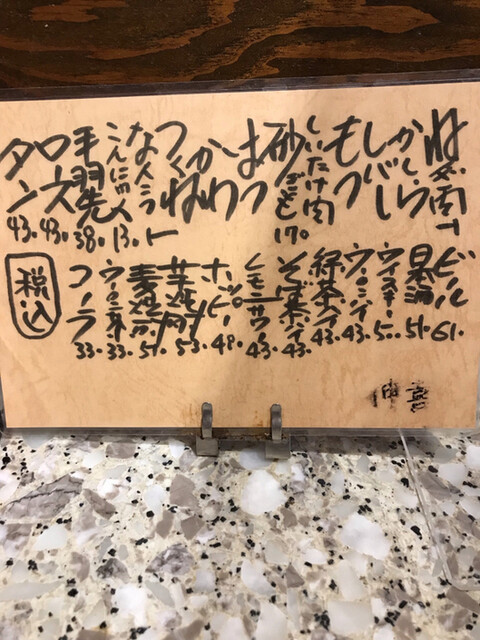 ねぎ肉
かしら
レバー
もつ
しいたけ肉
砂ぎも 170.
はつ
かわ
つくね
なんこつ
こんにゃく 13.
手羽先 38.
ロース 43.
タン 43.
ビール 61.
51.
ウイスキー 50.
ウーロンハイ 43.
緑茶ハイ 43.
そば茶ハイ 43.
レモンサワー 43.
ホッピー 48.
芋焼酎 53.
麦焼酎 51.
ウーロン茶 33.
コーラ 33.
税込
伸喜